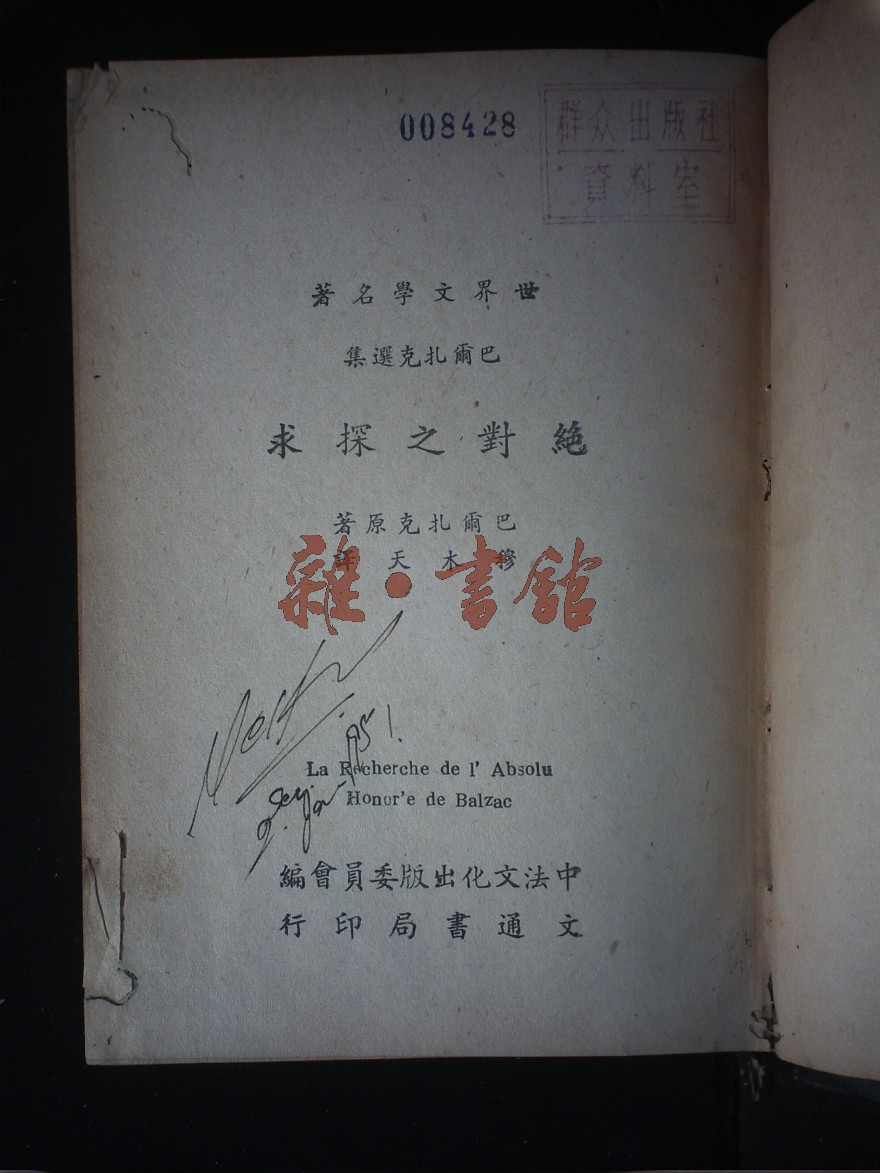 008428
群众出版社
資料室
世界文學名著
巴爾扎克選集
絕對之探求
巴爾扎克原著
穆木天譯
雜·書館
La Recherche de l' Absolu
Honor'e de Balzac
中法文化出版委員會編
文通書局印行